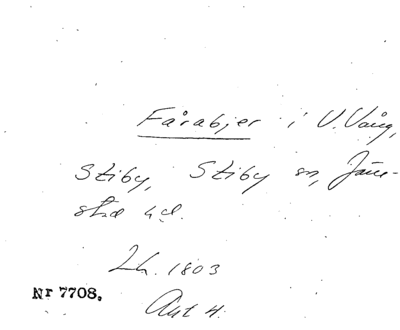 Fårabjer i V. Vång,
Stiby, Stiby sn, Järre-
stad hd.
Lh. 1803
Nr 7708.
Akt 4.